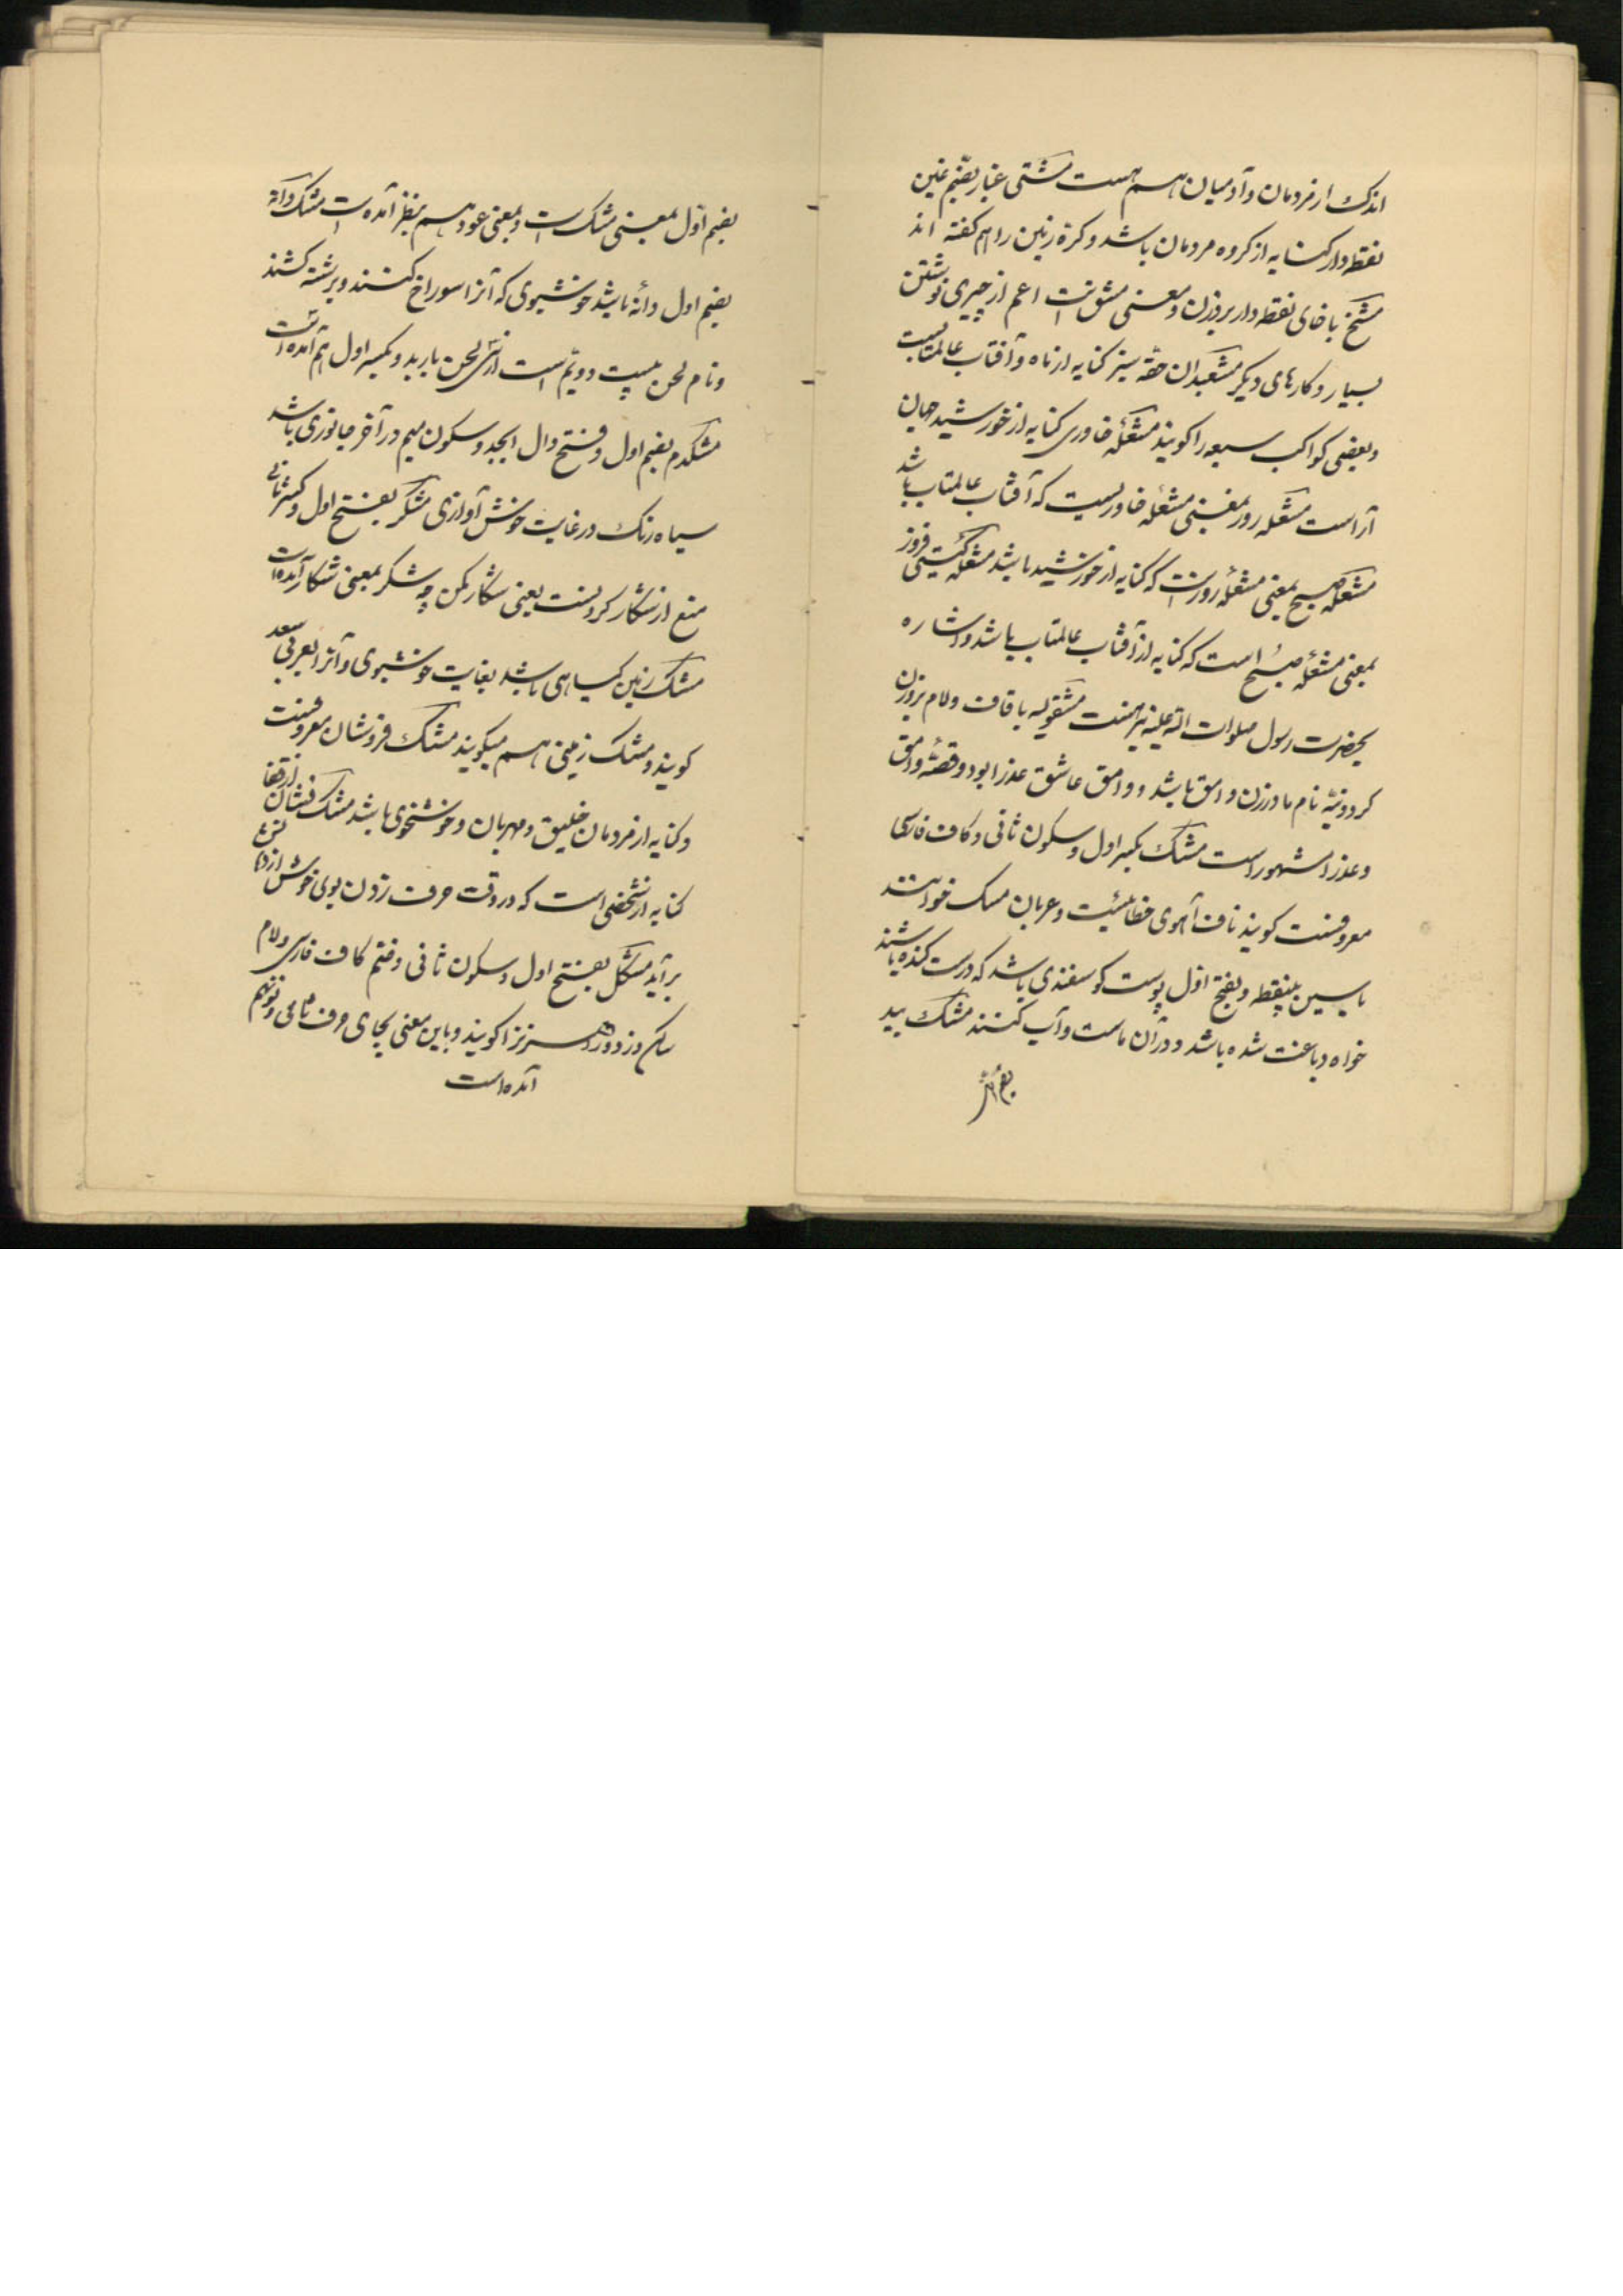 اندک از مردمان و آدمیان هم هست مشتی غبار بضم غین
نقطه دار کنایه از کروه مردمان باشد و کرهٔ زمین را هم کفته اند
مشخ با خای نقطه دار بر وزن و معنی مشق است اعم از چیزی نوشتن
بسیار و کارهای دیکر مشعبدان حقه سبز کنایه از ماه و آفتاب عالمتابست
و بعضی کواکب سبعه را کویند مشعلهٔ خاوری کنایه از خورشید جهان
آراست مشعله روز بمعنی مشعله خاوریست که آفتاب عالمتاب باشد
مشعله صبح بمعنی مشعله روز است که کنایه از خورشید باشد مشعله کیتی فروز
بمعنی مشعله صبح است که کنایه از آفتاب عالمتاب باشد و اشاره
بحضرت رسول صلوات الله علیه نیز هست مشقولیه با قاف و لام بر وزن
کردونیه نام مادر زن وامق باشد و وامق عاشق عذرا بود و قصهٔ وامق
و عذرا مشهور است مشک بکسر اول و سکون ثانی و کاف فارسی
معروفست کویند ناف آهوی خطائیست و عربان مسک خوانند
با سین بینقطه و بفتح اول پوست کوسفندی باشد که درست کنده باشند
خواه دباغت شده باشد و در آن ماست و آب کنند مشک بید
بضم اول
بضم اول بمعنی مشک است و بمعنی عود هم بنظر آمده است مشک دانه
بضم اول دانهٔ باشد خوشبوی که آنرا سوراخ کنند و برشته کشند
و نام لحن بیست و دویم است از سی لحن باربد و بکسر اول هم آمده است
مشکدم بضم اول و فتح دال ابجد و سکون میم در آخر جانوری باشد
سیاه رنک در غایت خوش آوازی مشکر بفتح اول و کسر ثانی
منع از شکار کردنست یعنی شکار مکن چه شکر بمعنی شکار آمده است
مشک زمین کیاهی باشد بغایت خوشبوی و آنرا بعربی سعد
کویند و مشک زمینی هم میکویند مشک فروشان معروفست
و کنایه از مردمان خلیق و مهربان و خوشخوی باشد مشک فشان از فقاع
کنایه از شخصی است که در وقت حرف زدن بوی خوش از دهانش
برآید مشکل بفتح اول و سکون ثانی و ضم کاف فارسی و لام
ساکن دزد و راهزن را کویند و باین معنی بجای حرف ثانی نون هم
آمده است